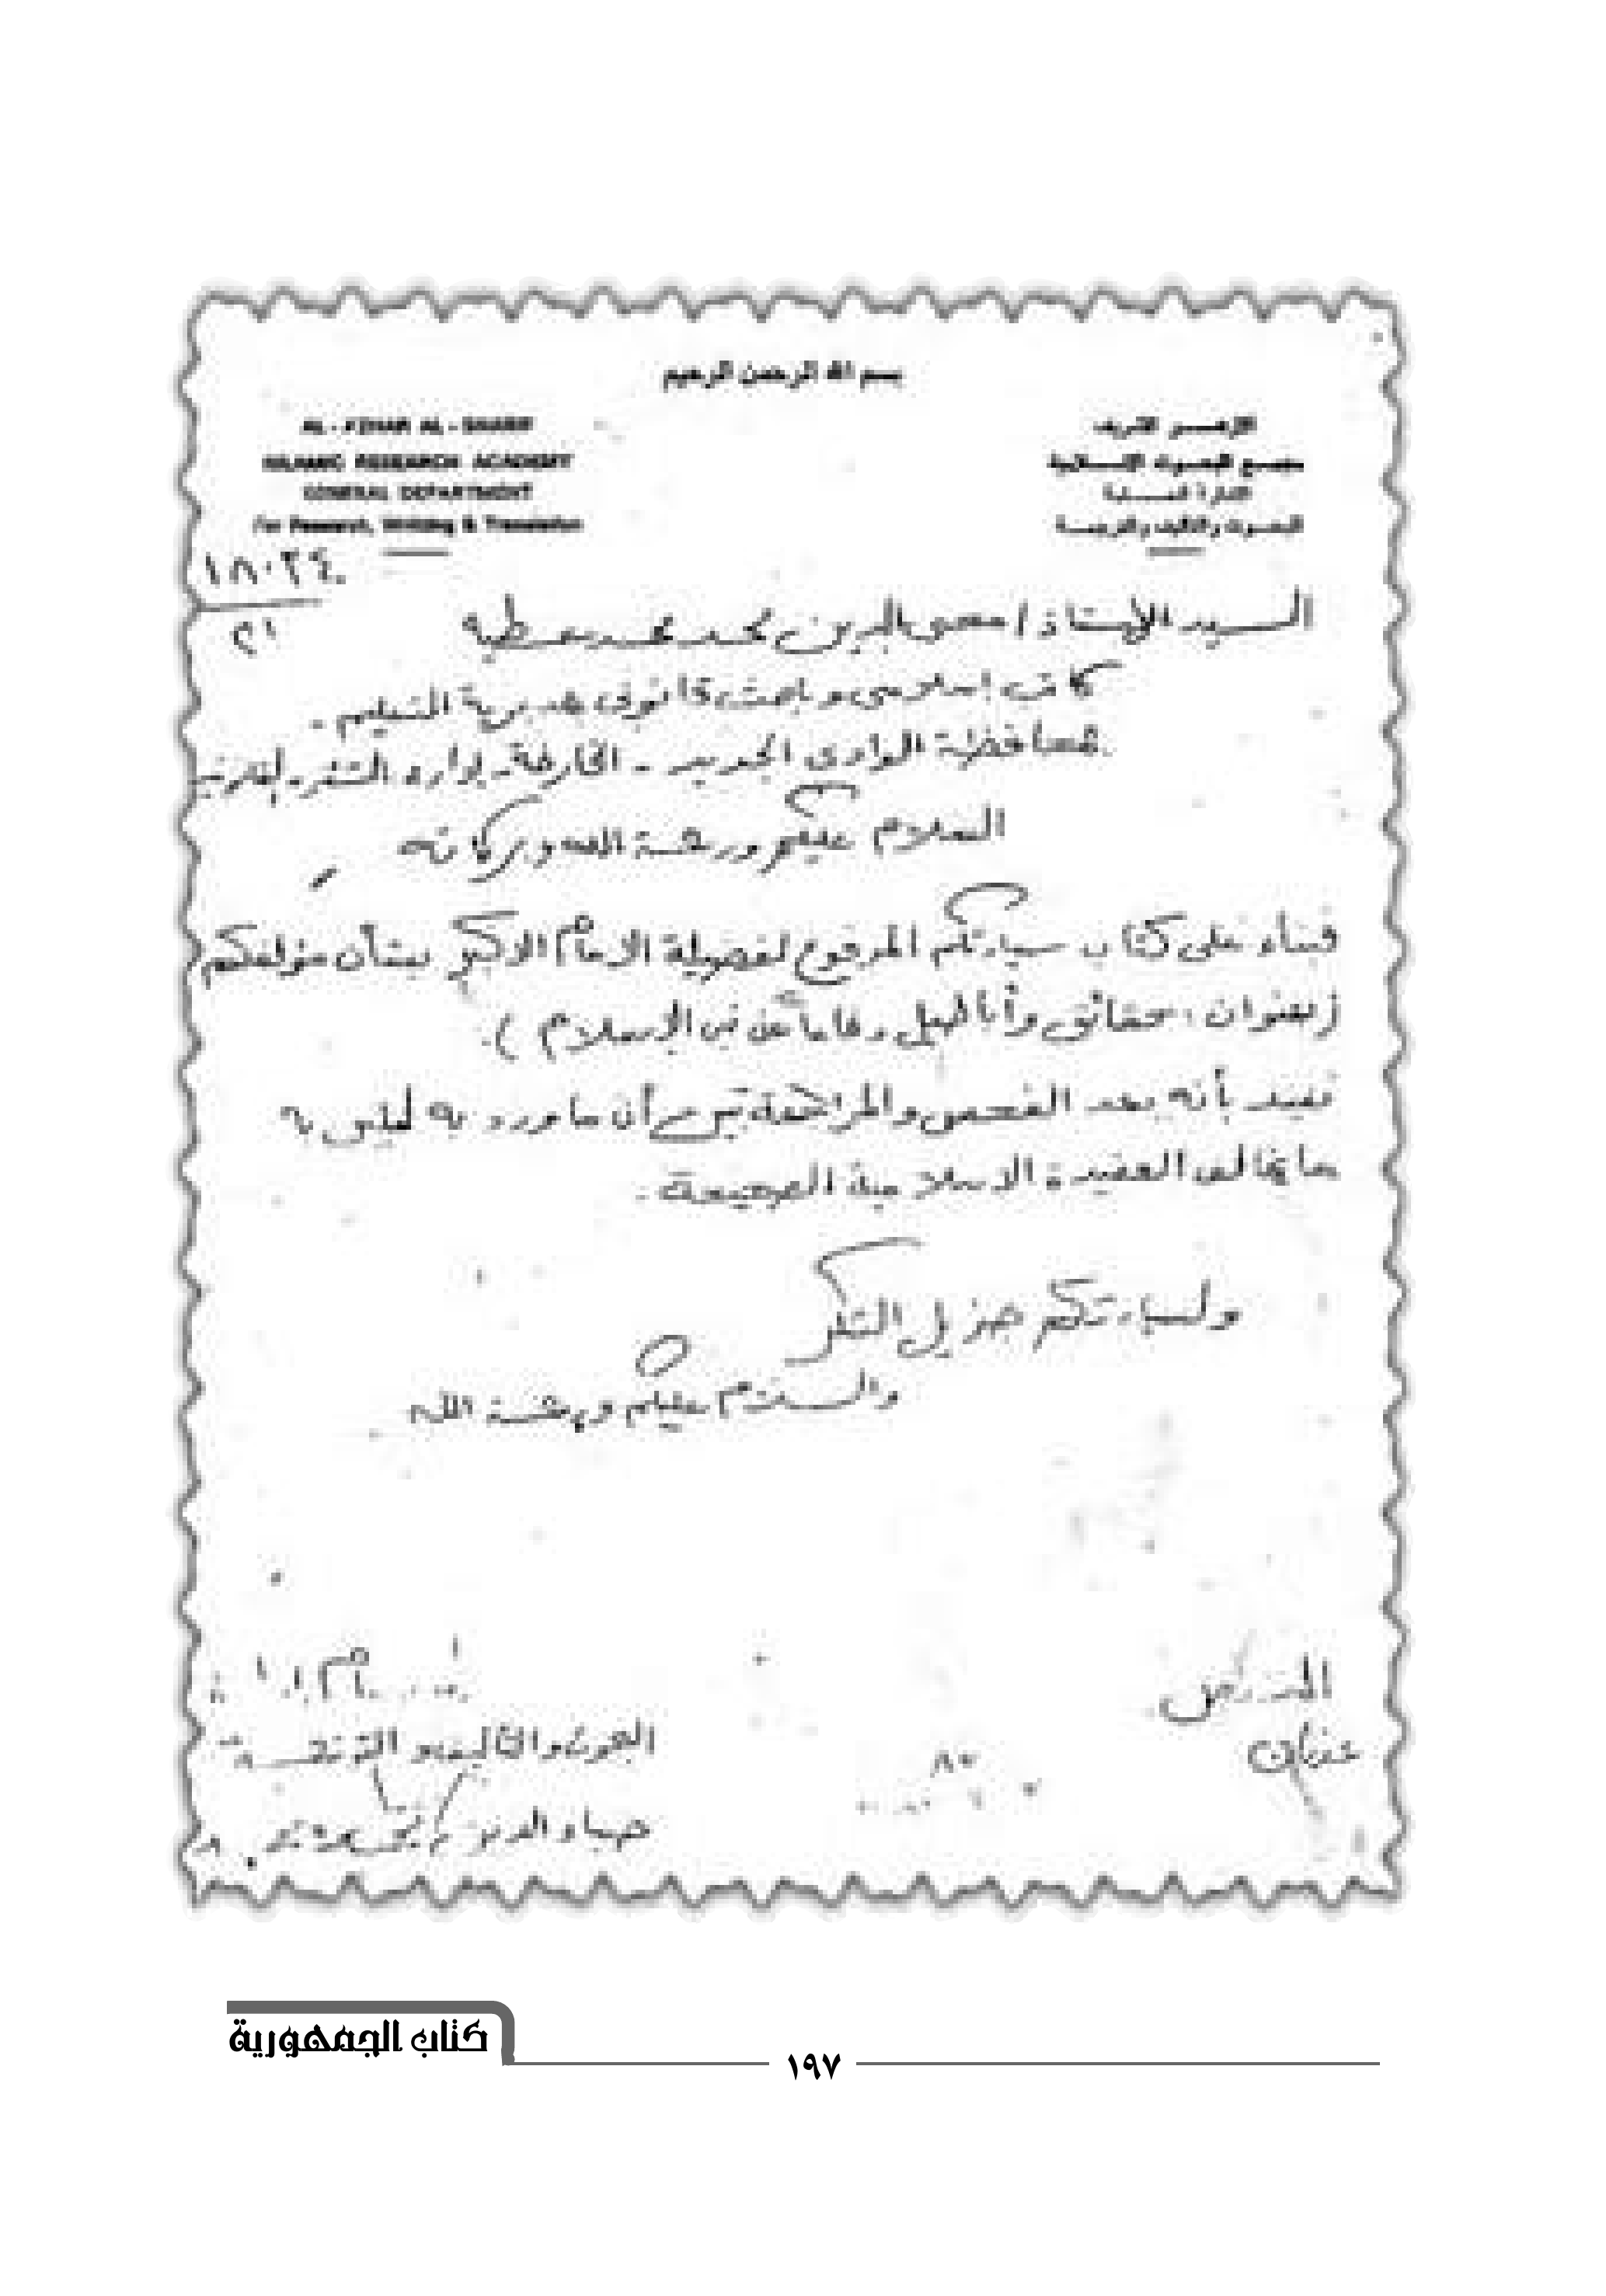 بسم الله الرحمن الرحيم
الأزهر الشريف
مجمع البحوث الإسلامية
الإدارة العامة
للبحوث والتأليف والترجمة
AL - AZHAR AL - SHARIF
ISLAMIC RESEARCH ACADEMY
GENERAL DEPARTMENT
For Research, Writing & Translation
السيد الأستاذ / محى الدين محمد محمد عطيه
كاتب إسلامى وباحث قانونى بمديرية التعليم -
بمحافظة الوادى الجديد - الخارجة - إدارة الشئون القانونية
السلام عليكم ورحمة الله وبركاته
فبناء على كتاب سيادتكم المرفوع لفضيلة الامام الاكبر بشأن مؤلفكم
( بعنوان : حقائق وأباطيل دفاعاً عن نبى الإسلام ) .
نفيد بأنه بعد الفحص والمراجعة تبين أن ما ورد به ليس به
ما يخالف العقيدة الاسلامية الصحيحة .
ولسيادتكم جزيل الشكر
والسلام عليكم ورحمة الله
البحوث والتأليف و
كتاب الجمهورية
١٩٧